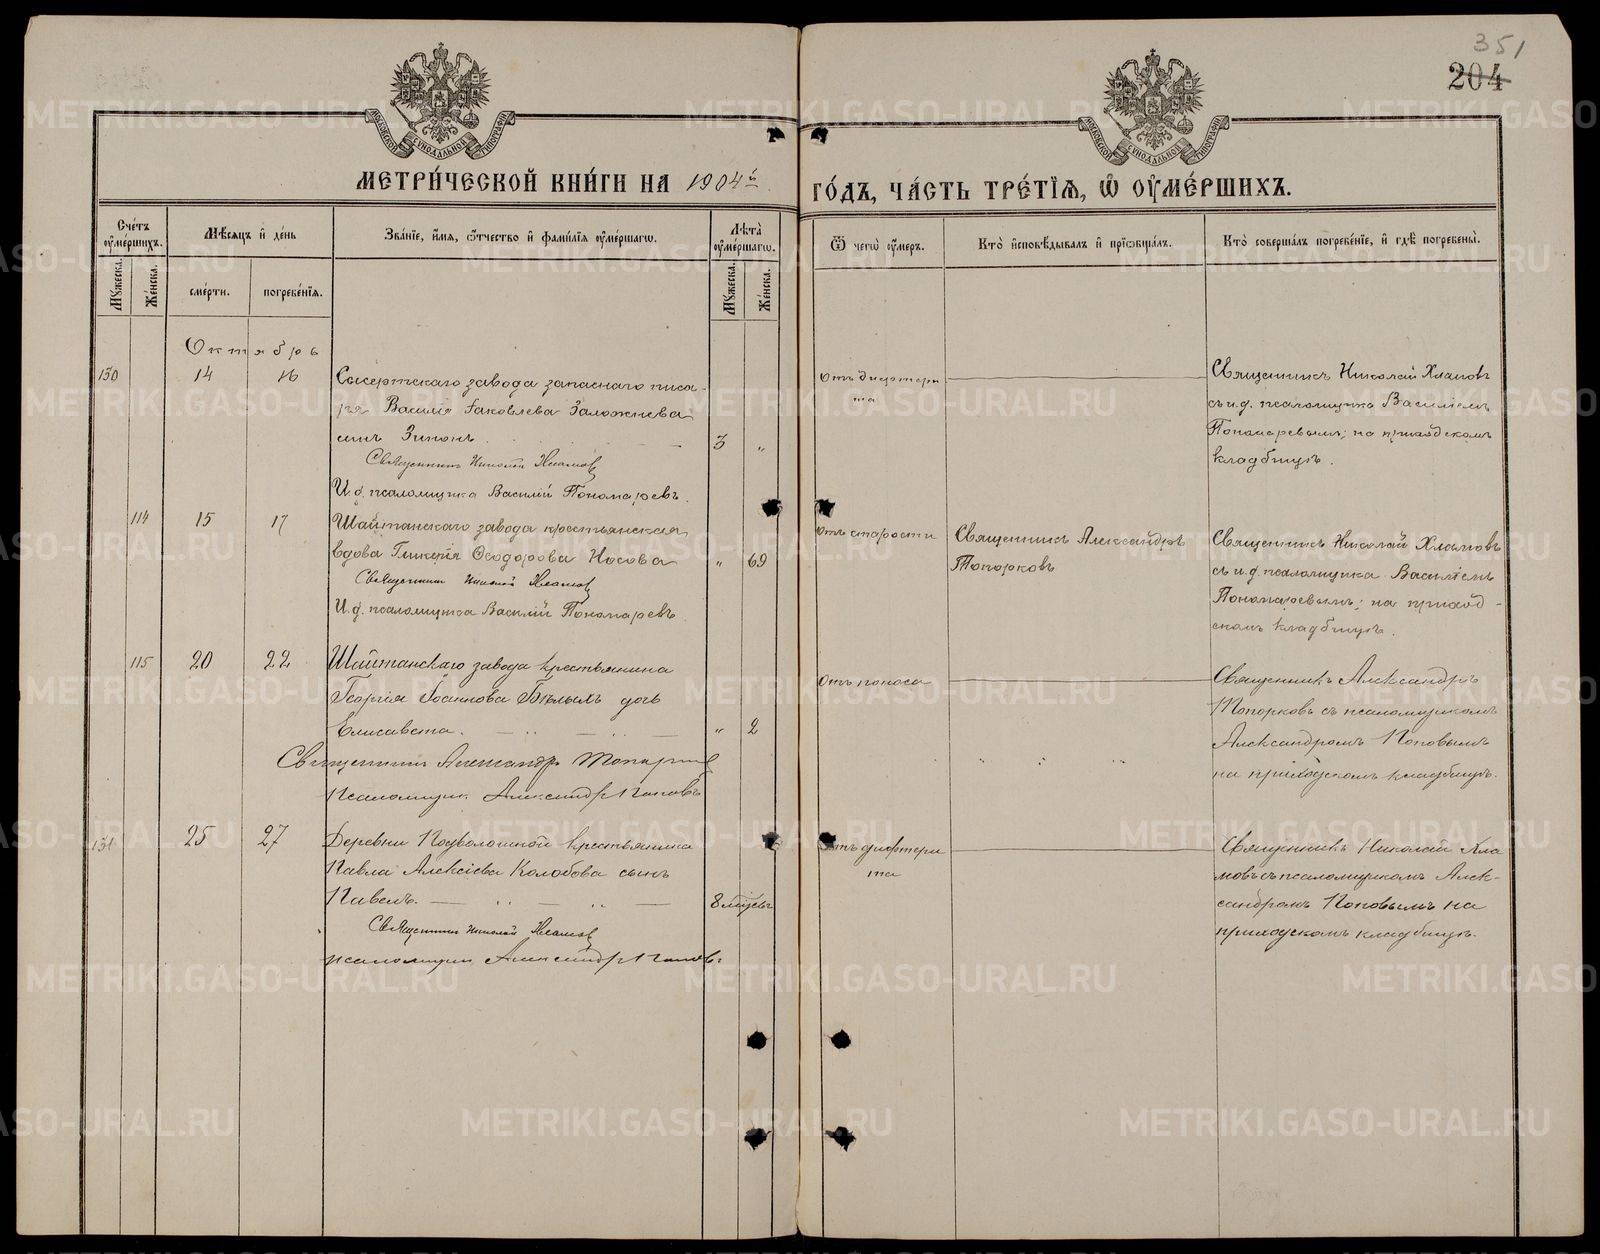 351
204
МОСКОВСКОЙ СѴНОДАЛЬНОЙ ТИПОГРАФІИ
МОСКОВСКОЙ СѴНОДАЛЬНОЙ ТИПОГРАФІИ
МЕТРИ́ЧЕСКОЙ КНИ́ГИ НА 1904й ГО́ДЪ, ЧА́СТЬ ТРЕ́ТІЯ, Ѡ ОУМЕ́РШИХЪ.
Сче́тъ оумершихъ.
Мѣсяцъ и де́нь
Зва́ніе, имя, ѿтчество и фамилія оумершагѡ.
Лѣта оумершагѡ.
Ѿ чегѡ оумеръ.
Кто исповѣдывалъ и пріѡбщалъ.
Кто совершалъ погребеніе, и гдѣ погребены.
Мужеска.
Женска.
сме́рти.
погребе́нія.
Мужеска.
Женска.
Октябрь
130 14 16 Сысертскаго завода запаснаго писа-
ря Василія Яковлева Заложнева
сынъ Зинонъ. 3 „
Священникъ Николай Хламовъ
И.д. псаломщика Василій Пономаревъ.
Отъ дифтери
та
Священникъ Николай Хламовъ
съ и.д. псаломщика Василіемъ
Пономаревымъ; на приходскомъ
кладбищѣ.
114 15 17 Шайтанскаго завода крестьянская
вдова Гликерія Ѳеодорова Носова „ 69
Священникъ Николай Хламовъ
И.д. псаломщика Василій Пономаревъ
Отъ старости
Священникъ Александръ
Топорковъ
Священникъ Николай Хламовъ
съ и.д. псаломщика Василіемъ
Пономаревымъ; на приход-
скомъ кладбищѣ.
115 20 22 Шайтанскаго завода крестьянина
Георгія Бѣлыхъ дочь
Елисавета. „ 2
Священникъ Александръ Топорковъ
Псаломщикъ Александръ Поповъ
Отъ поноса
Священникъ Александръ
Топорковъ съ псаломщикомъ
Александромъ Поповымъ
на приходскомъ кладбищѣ.
131 25 27 Деревни Подволошной крестьянина
Павла Алексіева Колобова сынъ
Павелъ. 8 мѣсяц
Священникъ Николай Хламовъ
псаломщикъ Александръ Поповъ
Отъ дифтери
та
Священникъ Николай Хла
мовъ съ псаломщикомъ Алек-
сандромъ Поповымъ на
приходскомъ кладбищѣ.
METRIKI.GASO-URAL.RU